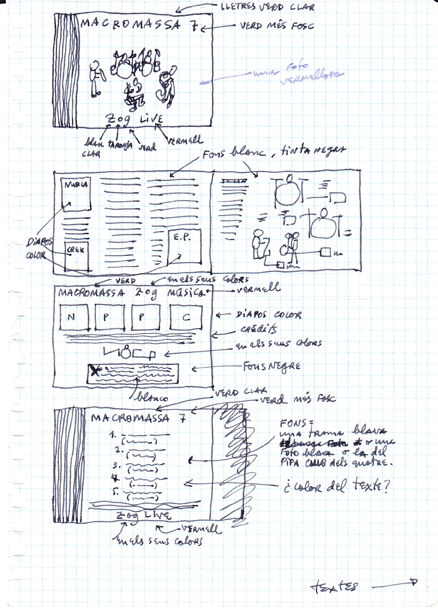 LLETRES VERD CLAR
MACROMASSA 7
VERD MÉS FOSC
una foto
vermellosa
Zog LIVE
blau
CLAR
TARONJA
verd
vermell
FONS blanc, tinta negra
NADIA
CREK
E.P.
DIAPOS
COLOR
VERD
en els seus colors
MACROMASSA Zog Música
vermell
N P P C
DIAPOS COLOR
CRÈDITS
en els seus colors
FONS NEGRE
blanco
VERD CLAR
verd més FOSC
MACROMASSA 7
1.
2.
3.
4.
5.
FONS =
una trama blava
o una
FOTO blava o la del
PIPA amb dels quatre.
¿color del texte?
Zog LIVE
vermell
en els seus colors
textes